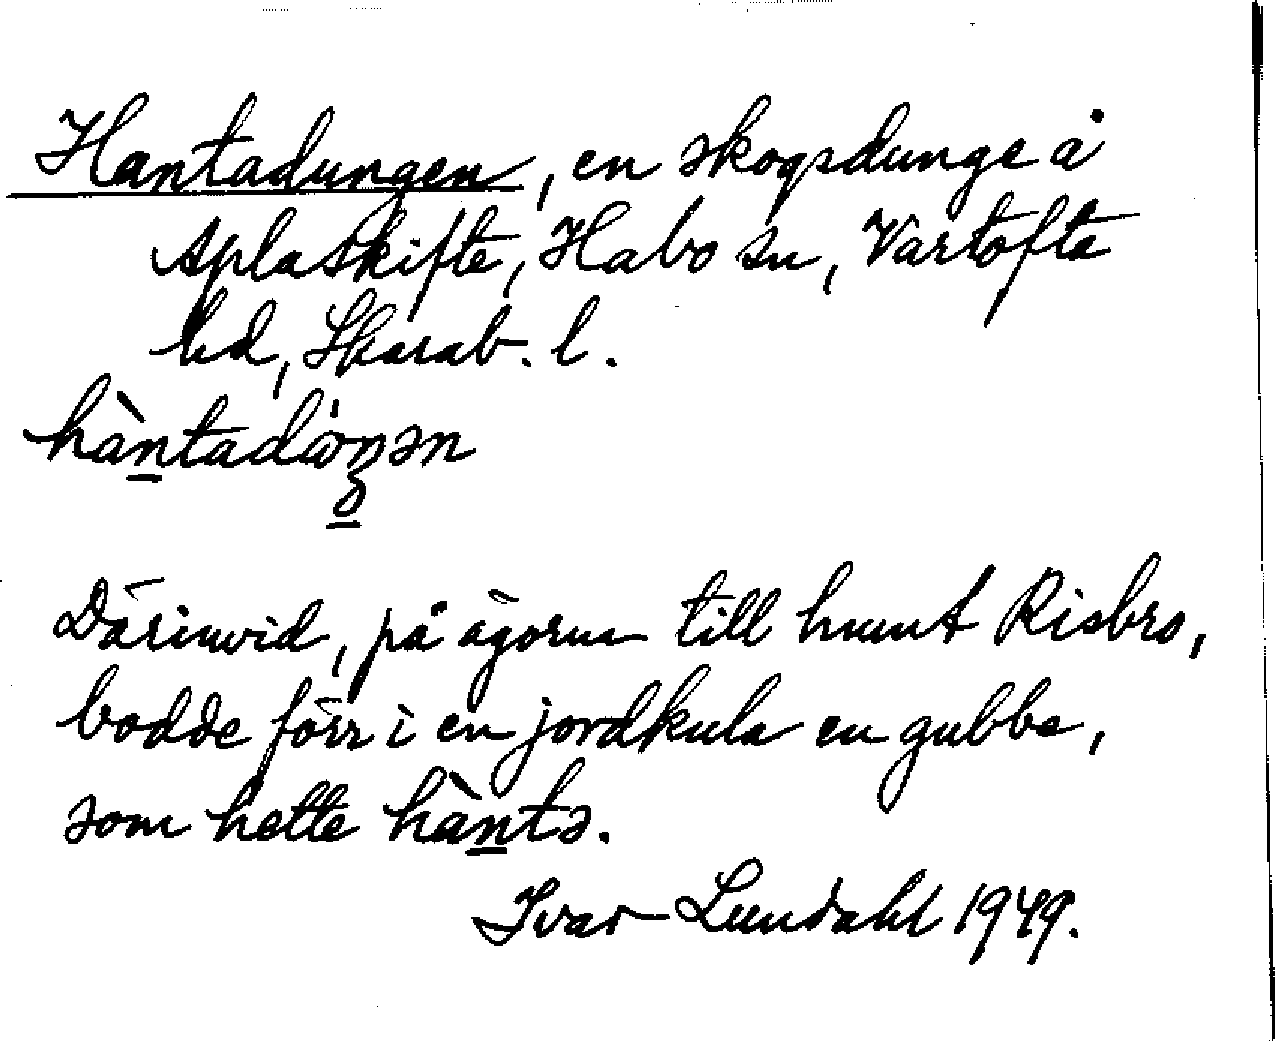 Hantadungen, en skogsdunge å
Aplaskifte, Habo sn, Vartofta
hd, Skarab. l.
hàntadöŋən
Därinvid, på ägorna till hmnt Risbro,
bodde förr i en jordkula en gubbe,
som hette hàntə.
Ivar Lundahl 1949.